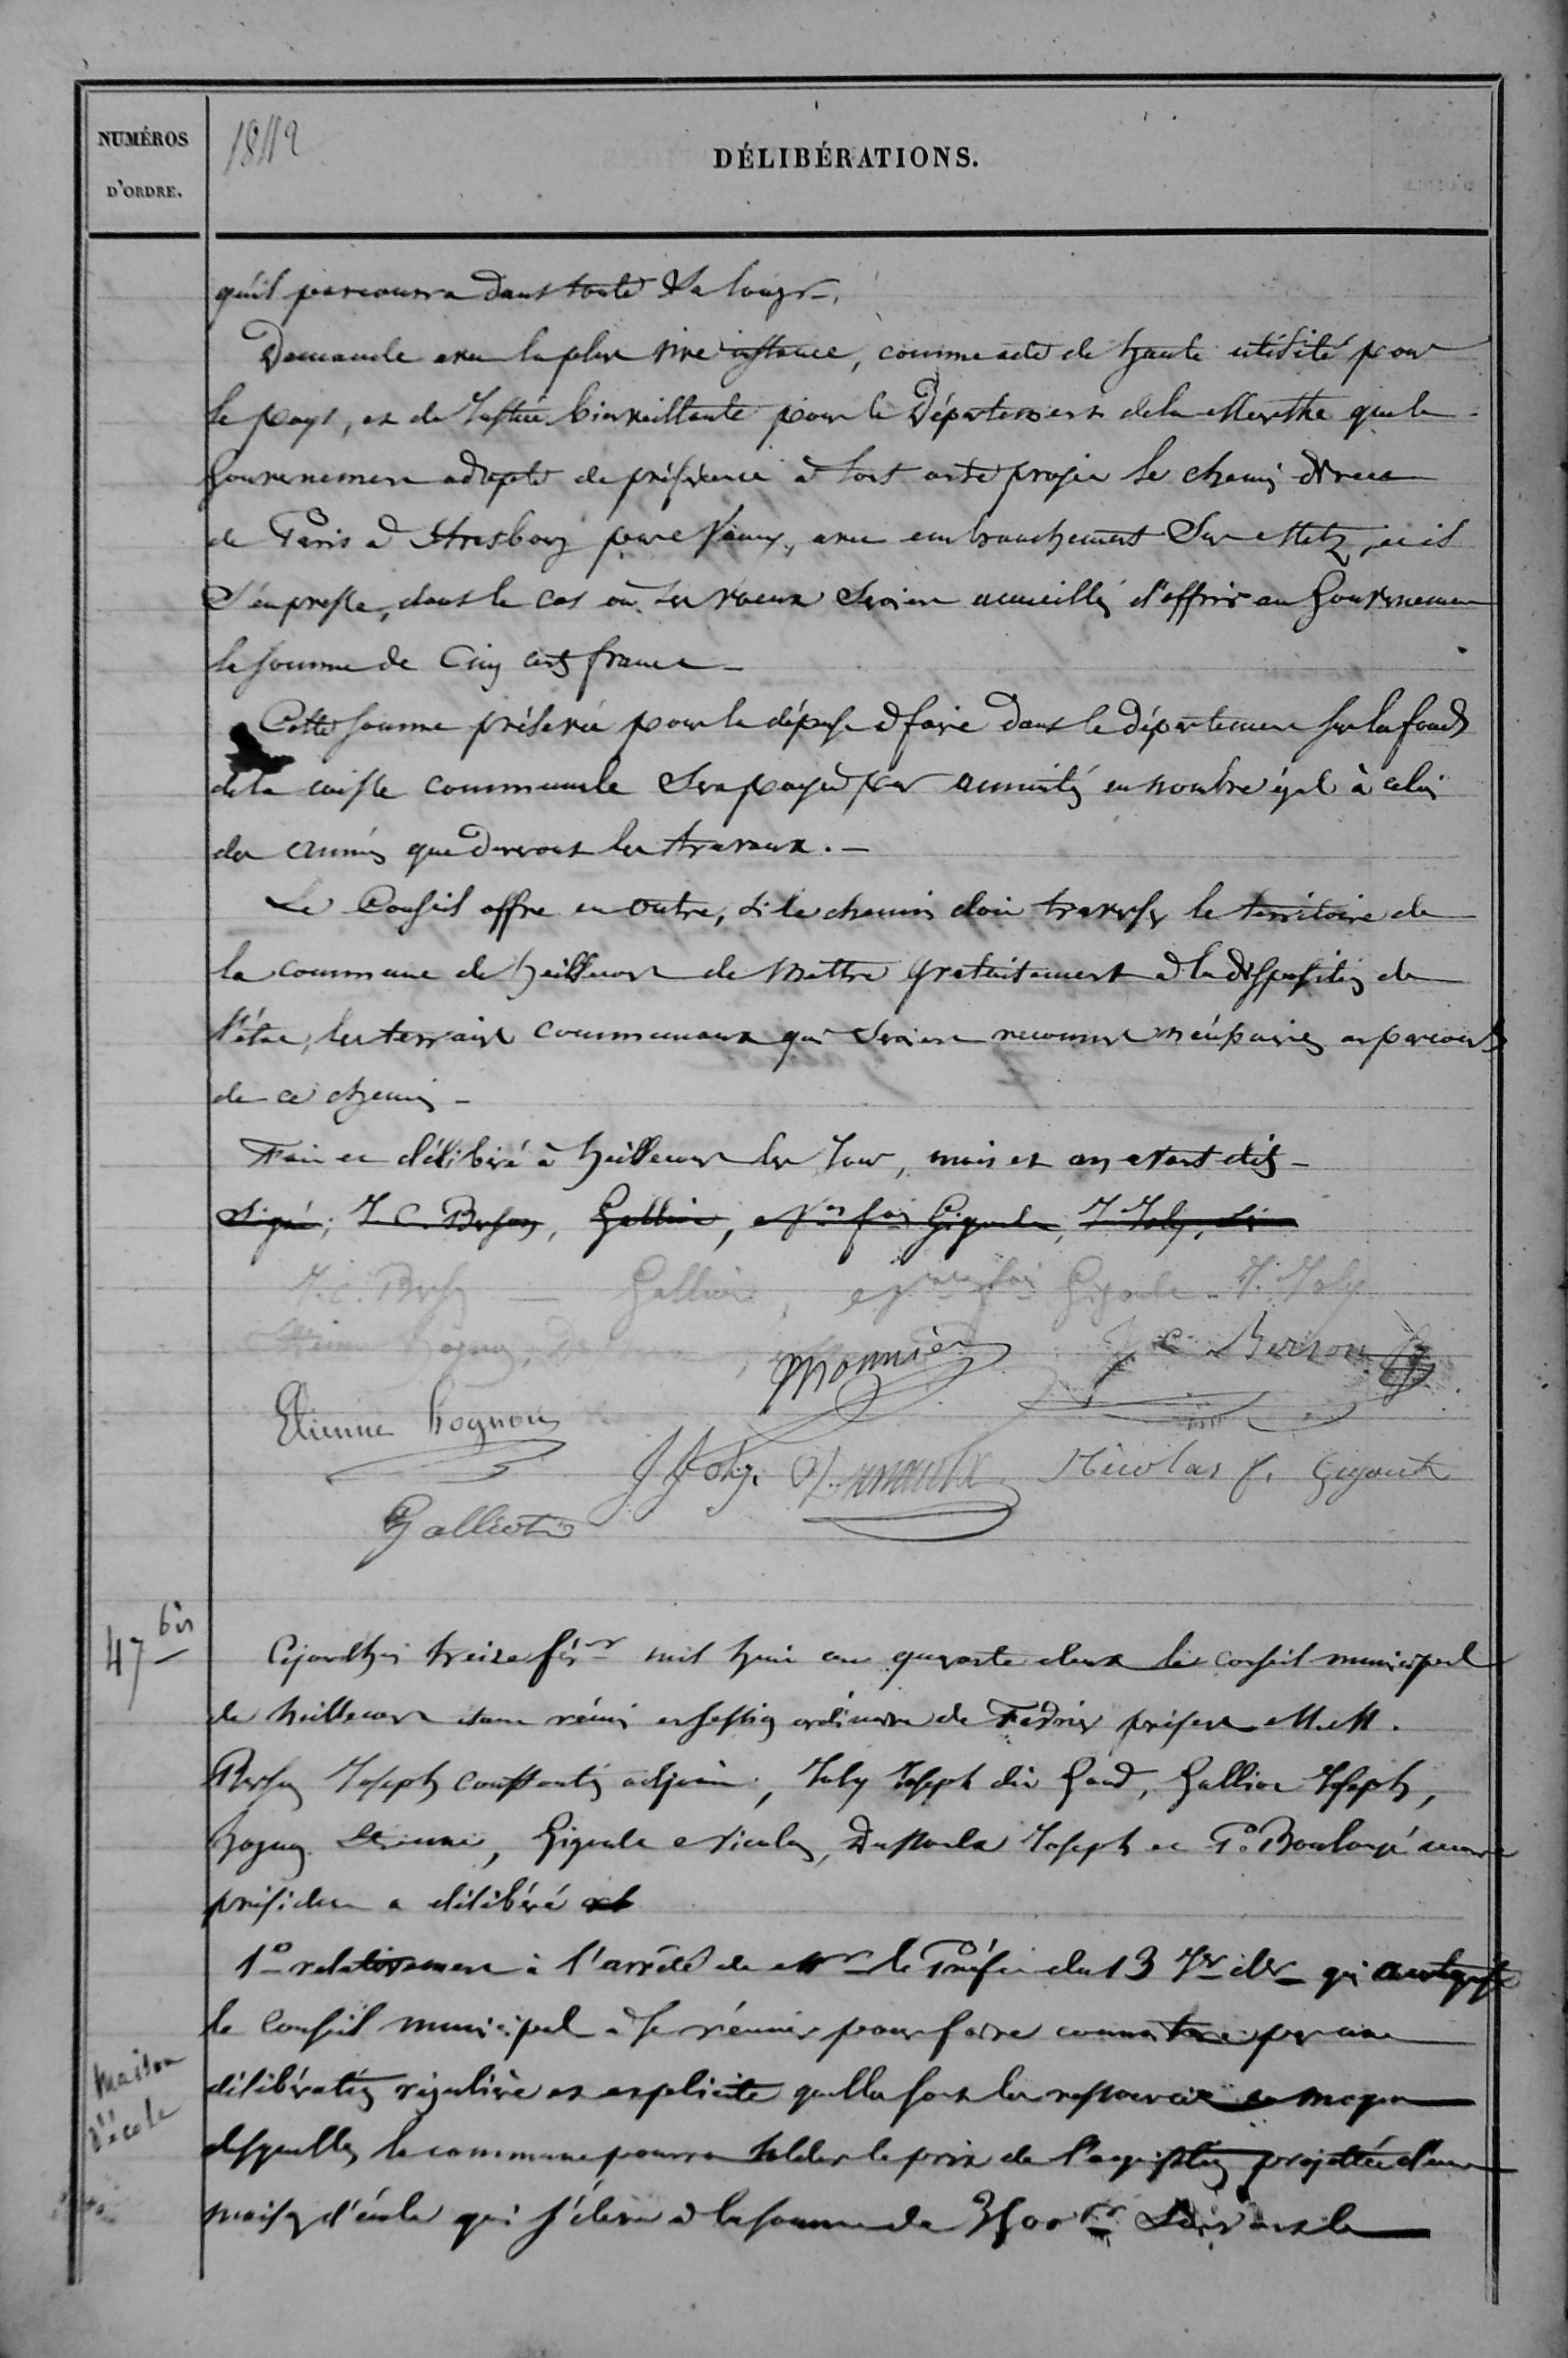 NUMÉROS
D'ORDRE.
1842
DÉLIBÉRATIONS.
qu'il parcourra dans toute sa longr.
Demande avec la plus vive instance, comme acte de haute utilité pour
le pays, et de Justice bienveillante pour le Département de la Meurthe que le
Gouvernement adopte de préférence à tout autre projet le chemin direct
de Paris à Strasbourg par Nancy, avec embranchement sur Metz, et il
s'empresse, dans le cas où ses vœux seraient accueillis d'offrir au Gouvernement
la somme de Cinq cents francs
Cette somme prélevée pour la dépense à faire dans le département sur les fonds
de la caisse communale sera payée par annuités en nombre égal à celui
des années que dureront les travaux.
Le Conseil offre en outre, si le chemin doit traverser le territoire de
la commune de heillecourt de mettre gratuitement à la disposition de
l'état, les terrains communaux qui seraient reconnus nécessaires au parcours
de ce chemin
Fait et délibéré à heillecourt les Jour, mois et an avant dits
Signé; J C. Berson, Galliot, Nas fois Gigoult, J Joly,
J. C. Berson Galliot, Nas fois Gigoult J. Joly
Etienne hognon,
Monnier J C Berson
Etienne hognon
J Joly. Nicolas f. Gigoult
Galliot
47 bis
Cejourd'hui treize févr mil huit cent quarante deux le conseil municipal
de heillecourt étant réuni en session ordinaire de Février présents M.M.
Berson Joseph constantin adjoint, Joly Joseph dit Gand, Galliot Joseph,
hognon Etienne, Gigoult Nicolas, Joseph et Boulangé maire
président a délibéré
1o relativement à l'arrêté de Mr le Préfet du 13 Jr der qui
le Conseil municipal à se réunir pour faire connaitre par une
Maison
d'école
délibération régulière et explicite quelles sont les ressources au moyen
desquelles la commune pourra solder le prix de l'acquisition projettée d'une
maison d'école qui s'élève à la somme de 3500 fr